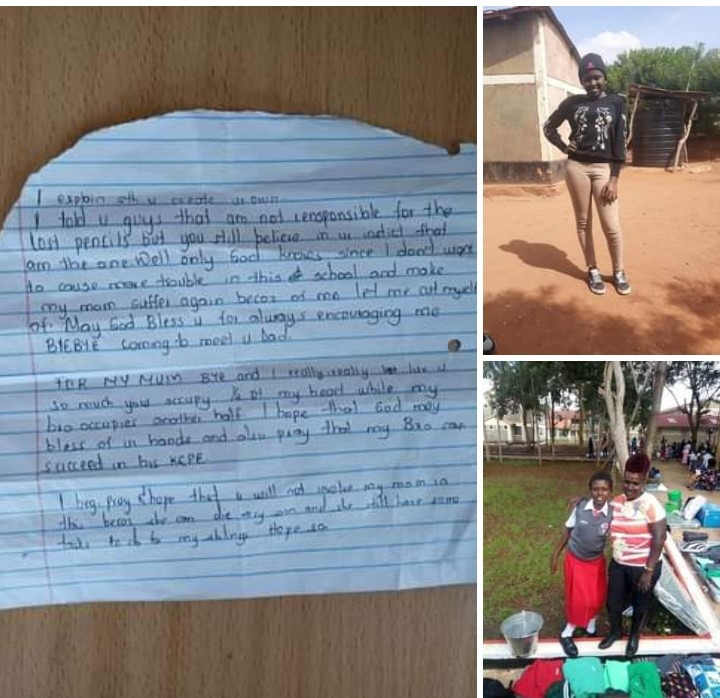 I explain
I told u guys that am not rensponsible for the
lost pencils but you still believe in ur instict that
am the one. Well only God knows since I don't want
to cause more trouble in this school and make
my mom suffer again becoz of me let me cut myself
of. May God Bless u for always encouraging me
BYEBYE coming to meet u Dad.
FOR MY MUM BYE and I really really luv u
so much you occupy ½ of my heart while my
bro occupies another half I hope that God may
bless ur hands and also pray that my Bro can
succeed in his KCPE
I beg, pray & hope that u will not involve my mom in
this becoz she can die any and she still have some
to my siblings Hope so